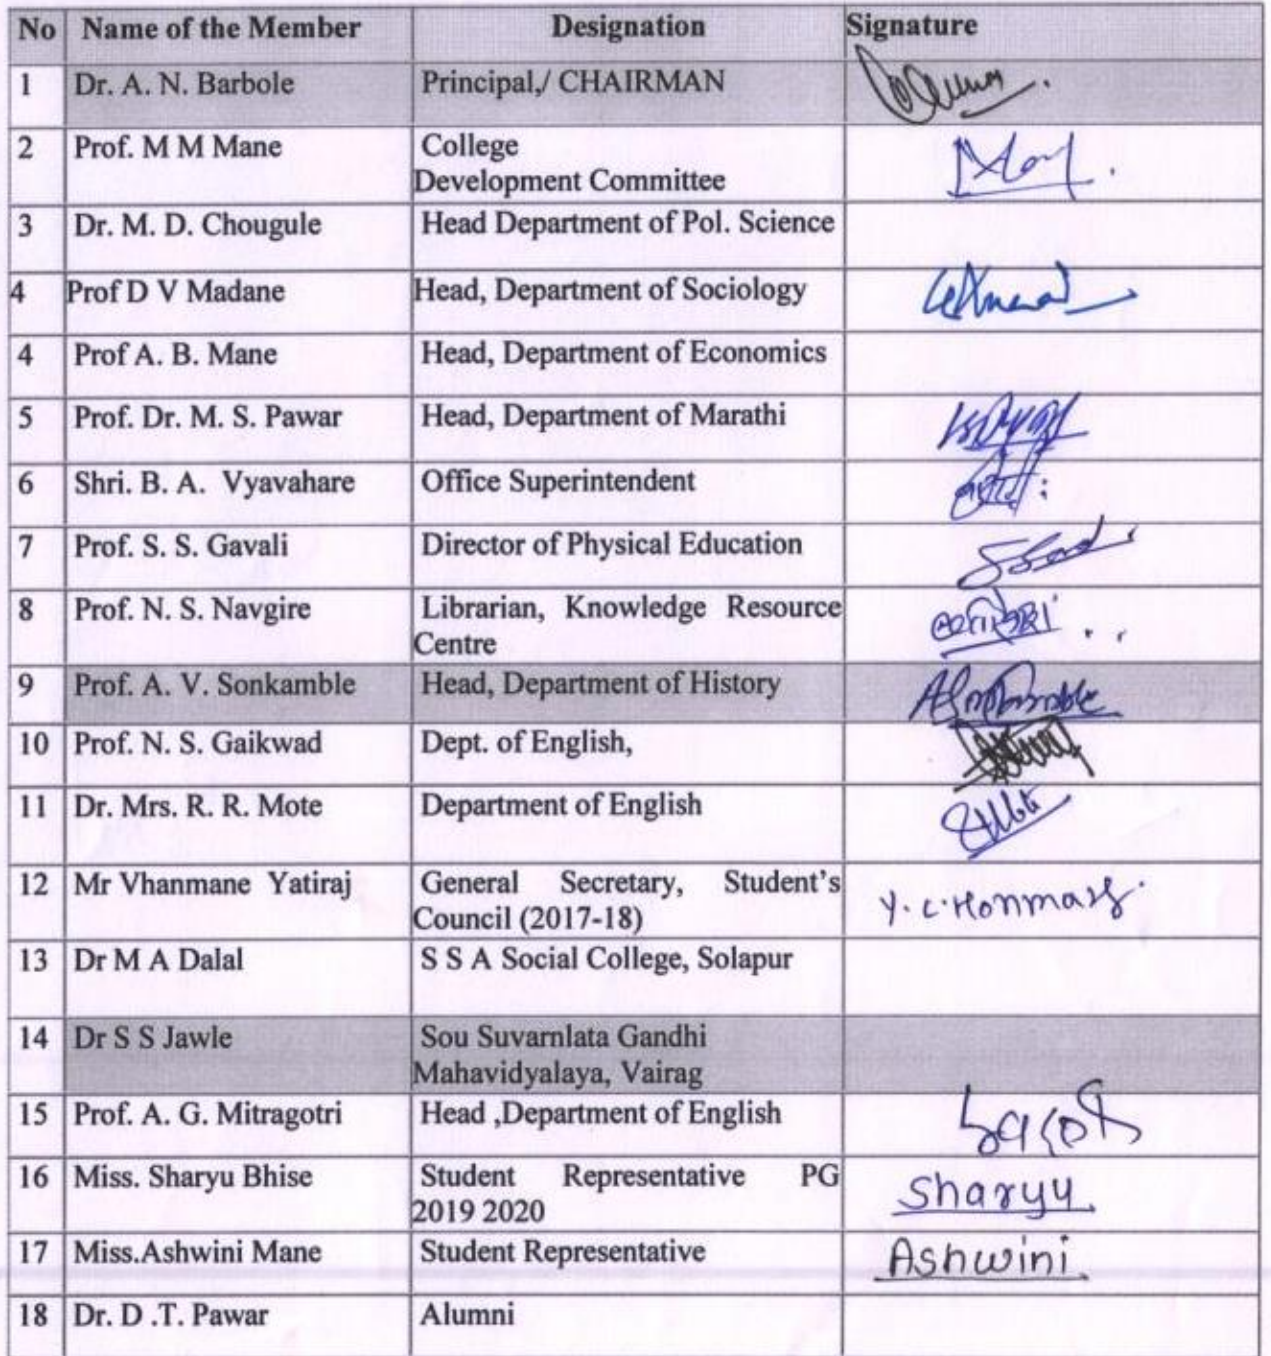 No Name of the Member Designation Signature
1 Dr. A. N. Barbole Principal,/ CHAIRMAN
2 Prof. M M Mane College
Development Committee
3 Dr. M. D. Chougule Head Department of Pol. Science
4 Prof D V Madane Head, Department of Sociology
4 Prof A. B. Mane Head, Department of Economics
5 Prof. Dr. M. S. Pawar Head, Department of Marathi
6 Shri. B. A. Vyavahare Office Superintendent
7 Prof. S. S. Gavali Director of Physical Education
8 Prof. N. S. Navgire Librarian, Knowledge Resource
Centre
9 Prof. A. V. Sonkamble Head, Department of History
10 Prof. N. S. Gaikwad Dept. of English,
11 Dr. Mrs. R. R. Mote Department of English
12 Mr Vhanmane Yatiraj General Secretary, Student's
Council (2017-18)
13 Dr M A Dalal S S A Social College, Solapur
14 Dr S S Jawle Sou Suvarnlata Gandhi
Mahavidyalaya, Vairag
15 Prof. A. G. Mitragotri Head ,Department of English
16 Miss. Sharyu Bhise Student Representative PG Sharyu.
2019 2020
17 Miss.Ashwini Mane Student Representative Ashwini.
18 Dr. D .T. Pawar Alumni